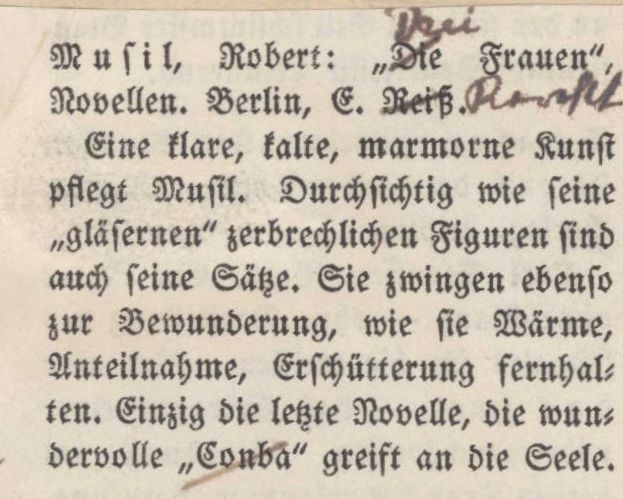 Drei
Musil, Robert: „Die Frauen“,
Novellen. Berlin, E. Reiß. Rowohlt
Eine klare, kalte, marmorne Kunst
pflegt Musil. Durchsichtig wie seine
„gläsernen“ zerbrechlichen Figuren sind
auch seine Sätze. Sie zwingen ebenso
zur Bewunderung, wie sie Wärme,
Anteilnahme, Erschütterung fernhal-
ten. Einzig die letzte Novelle, die wun-
dervolle „Conba“ greift an die Seele.